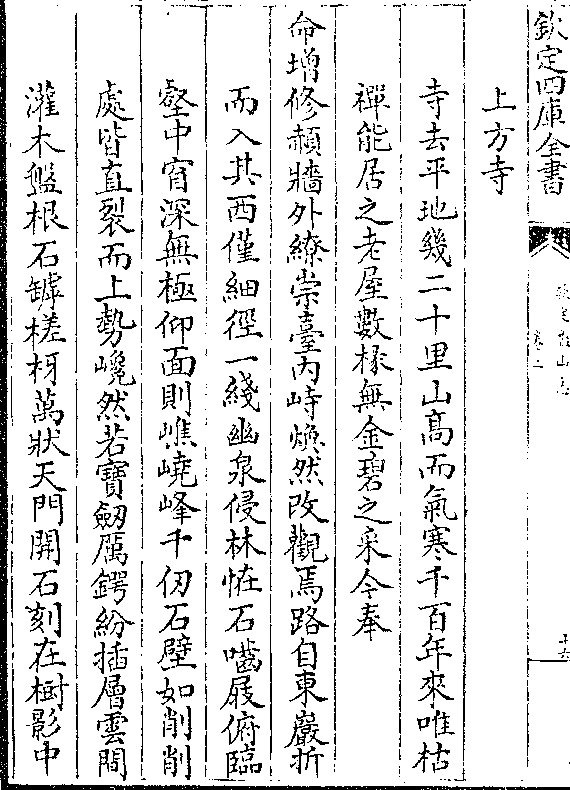 欽定四庫全書
欽定盤山志
卷二
十六
上方寺
寺去平地幾二十里山髙而氣寒千百年來唯枯
禪能居之老屋數椽無金碧之采今奉
命增修頳牆外繚崇臺内峙煥然改觀焉路自東巖折
而入其西僅細徑一綫幽泉侵林恠石嚙屐俯臨
壑中窅深無極仰面則嶕嶢峰千仞石壁如削削
處皆直裂而上勢巉然若寶劒厲鍔紛插層雲間
灌木盤根石罅槎枒萬狀天門開石刻在樹影中